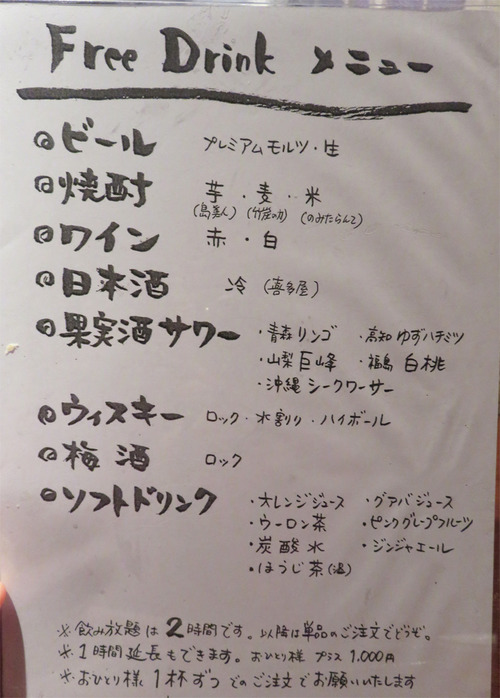 Free Drink メニュー
◎ビール プレミアムモルツ・生
◎焼酎 芋・麦・米
(島美人) (のみたらんて)
◎ワイン 赤・白
◎日本酒 冷 (喜多屋)
◎果実酒サワー ・青森リンゴ ・高知ゆずハチミツ
・山梨巨峰 ・福島 白桃
・沖縄シークワーサー
◎ウィスキー ロック・水割り・ハイボール
◎梅酒 ロック
◎ソフトドリンク ・オレンジジュース ・グアバジュース
・ウーロン茶 ・ピンクグレープフルーツ
・炭酸水 ・ジンジャエール
・ほうじ茶(温)
※飲み放題は2時間です。以降は単品のご注文でどうぞ。
※1時間延長もできます。おひとり様 プラス 1,000円
※おひとり様、1杯ずつでのご注文でお願いいたします